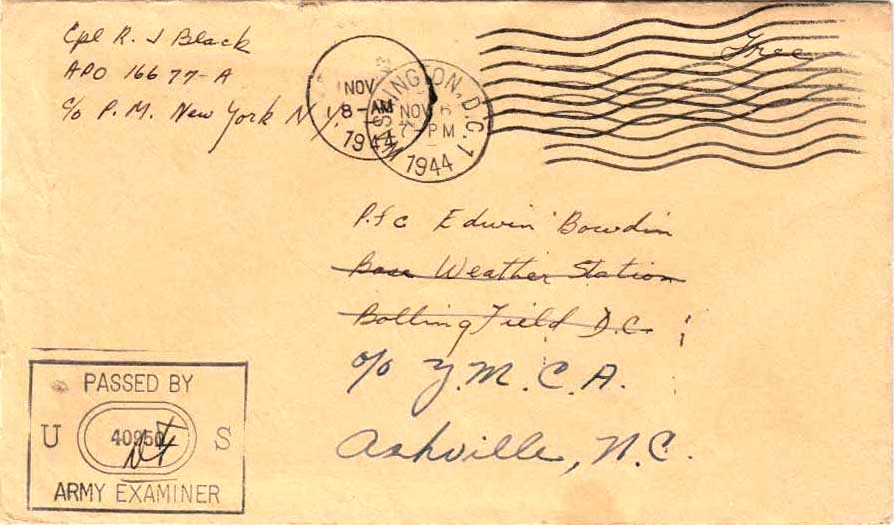 Cpl R. J Black
APO 16677-A
c/o P. M. New York N.Y.
Free
NOV
8-AM
1944
WASHINGTON, D.C. 1
NOV 6
7-PM
1944
Pfc Edwin Bowdin
Base Weather Station
Bolling Field D.C.
c/o Y.M.C.A.
Ashville, N.C.
PASSED BY
U 40950 S
ARMY EXAMINER